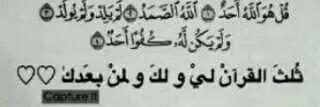 قُلْ هُوَ ٱللَّهُ أَحَدٌ ١ ٱللَّهُ ٱلصَّمَدُ ٢ لَمْ يَلِدْ وَلَمْ يُولَدْ ٣
وَلَمْ يَكُن لَّهُۥ كُفُوًا أَحَدٌۢ ٤
ثلثَ القرآنَ ليْ و لكَ و لمنْ بعدكَ ♡♡
Capture it